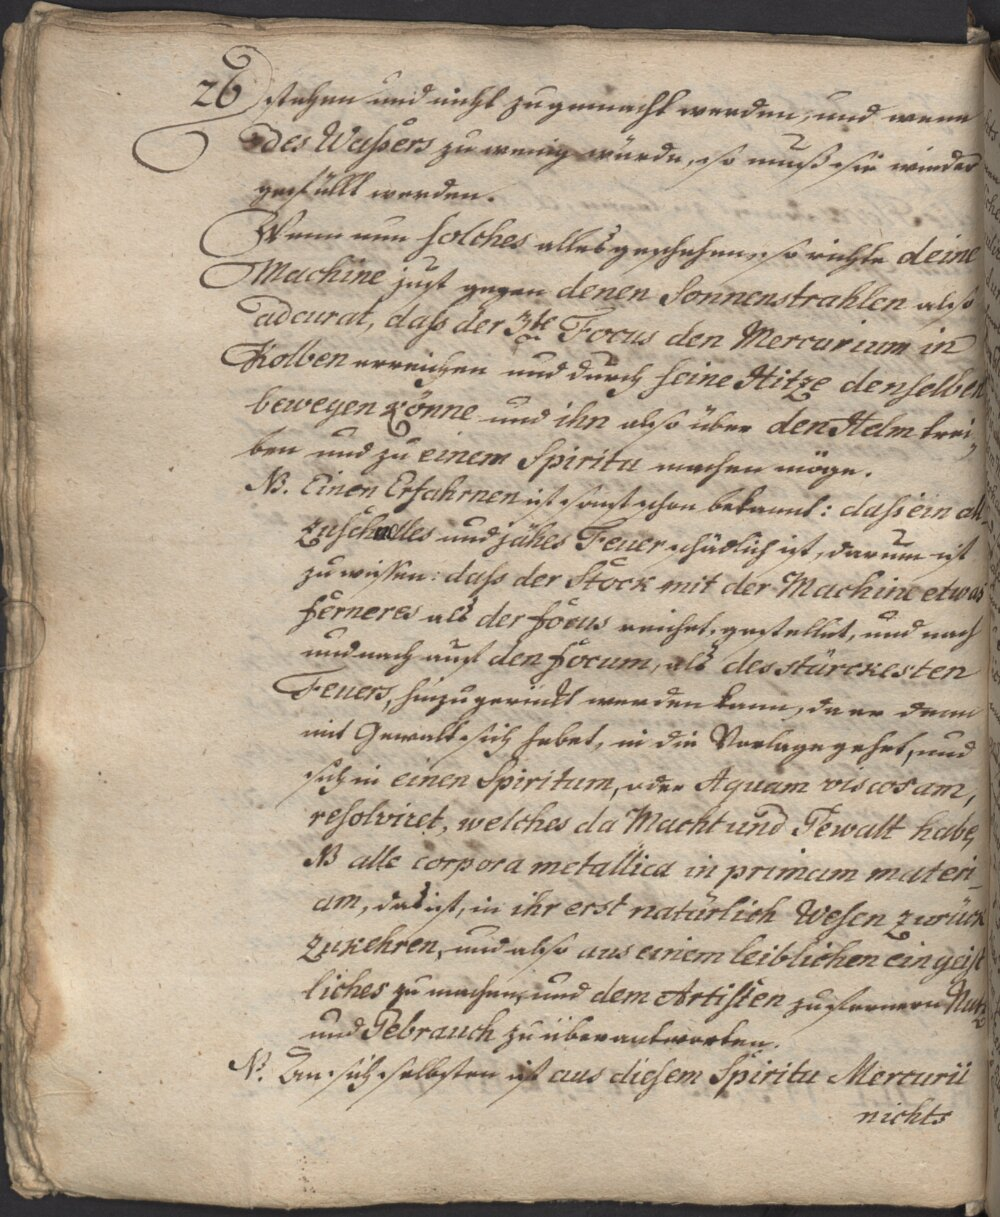 26
stehen und nicht zugemacht werden, und wenn
des Waßers zu wenig würde, so muß sie wieder
gefüllt werden.
Wenn nun solches alles geschehen, so richte deine
Machine just gegen denen Sonnenstrahlen also
adcurat, daß der 3te Focus den Mercurium in
Kolben erreichen und durch seine Hitze denselben
bewegen könne und ihn also über den Helm trei,
ben und zu einem Spiritu machen möge.
NB. Einen Erfahrnen ist sonst schon bekannt: daß ein all
zuschnelles und jähes Feuer schädlich ist, darum ist
zu wissen: daß der Stock mit der Machine etwas
ferneres als der focus reichet, gestellet, und nach
und nach auf den focum, als des stärckesten
Feuers, hinzugerückt werden kann, da er denn
mit Gewalt sich hebet, in die Vorlage gehet, und
sich in einen Spiritum, oder Aquam viscosam,
resolviret, welches da Macht und Gewalt habe,
NB alle corpora metallica in primam materi-
am, das ist, in ihr erst natürlich Wesen zurück
zukehren, und also aus einem leiblichen ein geist
liches zu machen, und dem Artisten zu fernern Nutz
und Gebrauch zu überantworten.
N. An sich selbsten ist aus diesem Spiritu Mercurii
nichts